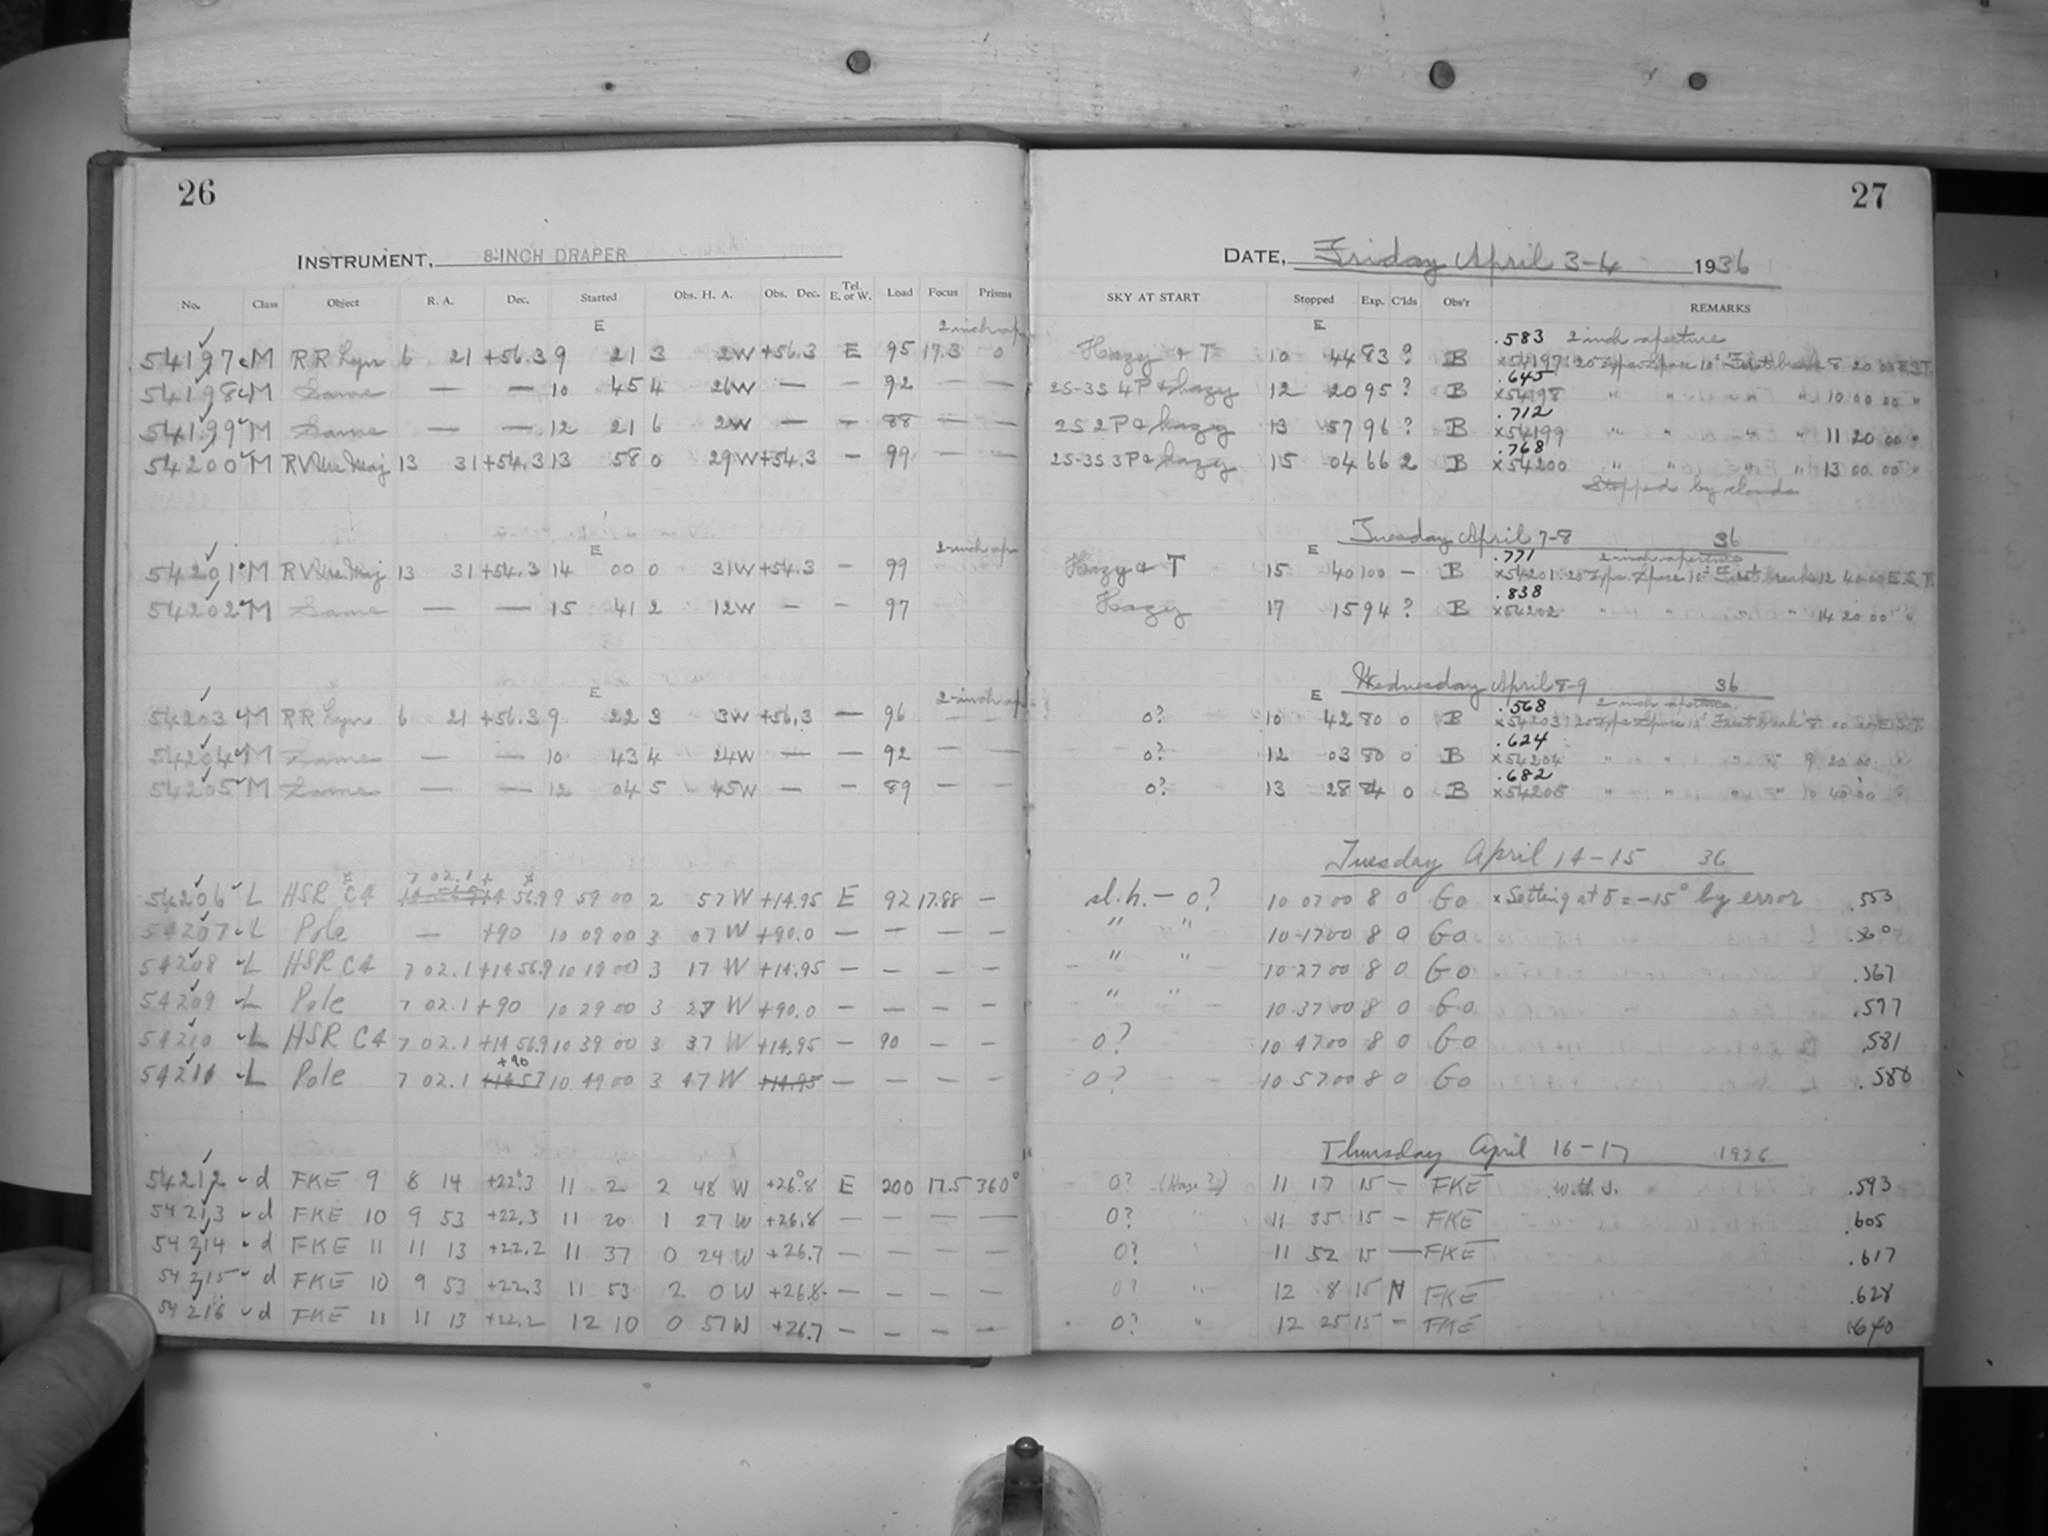 26
INSTRUMENT, 8-INCH DRAPER
No. Class Object R. A. Dec. Started Obs. H. A. Obs. Dec. Tel. E. or W. Load Focus Prisms
E 2-inch ap
54197 M RR Lyn 6 21 +56.3 9 21 3 2W +56.3 E 95 17.3 0
54198 M Same — — 10 45 4 26W — — 92 — —
54199 M Same — — 12 21 6 2W — — 88 — —
54200 M RV Urs Maj 13 31 +54.3 13 58 0 29W +54.3 — 99 — —
E 2-inch ap
54201 M RV Urs Maj 13 31 +54.3 14 00 0 31W +54.3 — 99
54202 M Same — — 15 41 2 12W — — 97
E 2-inch ap
54203 M RR Lyn 6 21 +56.3 9 22 3 3W +56.3 — 96 — —
54204 M Same — — 10 43 4 24W — — 92 — —
54205 M Same — — 12 04 5 45W — — 89 — —
7 02.1 + x
54206 L HSR C4 14 56.9 9 59 00 2 57 W +14.95 E 92 17.88 —
54207 L Pole — +90 10 09 00 3 07 W +90.0 — — — —
54208 L HSR C4 7 02.1 +14 56.9 10 19 00 3 17 W +14.95 — — — —
54209 L Pole 7 02.1 +90 10 29 00 3 27 W +90.0 — — — —
54210 L HSR C4 7 02.1 +14 56.9 10 39 00 3 37 W +14.95 — 90 — —
+90
54211 L Pole 7 02.1 +14 57 10 49 00 3 47 W +14.95 — — — —
54212 d FKE 9 8 14 +22.3 11 2 2 48 W +26.8 E 200 17.5 360°
54213 d FKE 10 9 53 +22.3 11 20 1 27 W +26.8 — — — —
54214 d FKE 11 11 13 +22.2 11 37 0 24 W +26.7 — — — —
54215 d FKE 10 9 53 +22.3 11 53 2 0 W +26.8 — — — —
54216 d FKE 11 11 13 +22.2 12 10 0 57 W +26.7 — — — —
27
DATE, Friday April 3-4 1936
SKY AT START Stopped Exp. C'lds Obs'r REMARKS
E .583 2 inch aperture
Hazy & T 10 44 83 ? B x54197: 20 Exps. Space 10s First break 8 20 00 E.S.T.
.645
2S-3S 4P & hazy 12 20 95 ? B x54198 " " " " 10 00 00 "
.712
2S 2P & hazy 13 57 96 ? B x54199 " " " " 11 20 00 "
.768
2S-3S 3P & hazy 15 04 66 2 B x54200 " " " " 13 00 00 "
Stopped by clouds
Tuesday April 7-8 36
E .771 2-inch aperture
Hazy & T 15 40 100 — B x54201: 20 Exps. Space 10s First break 12 40 00 E.S.T.
.838
Hazy 17 15 94 ? B x54202 " " " " 14 20 00 "
Wednesday April 8-9 36
E .568 2-inch aperture
0? 10 42 80 0 B x54203: 20 Exps. Space 10s First break 8 00 00 E.S.T.
.624
0? 12 03 80 0 B x54204 " " " " 9 20 00 "
.682
0? 13 28 84 0 B x54205 " " " " 10 40 00 "
Tuesday April 14-15 36
sl. h. — 0? 10 07 00 8 0 Go x Setting at δ = -15° by error .553
" " 10 17 00 8 0 Go
" " 10 27 00 8 0 Go .567
" " 10 37 00 8 0 Go .577
0? 10 47 00 8 0 Go .581
0? 10 57 00 8 0 Go .588
Thursday April 16-17 1936
0? (Haze?) 11 17 15 — FKE .593
0? " 11 35 15 — FKE .605
0? 11 52 15 — FKE .617
0? " 12 8 15 N FKE .628
0? " 12 25 15 — FKE .640